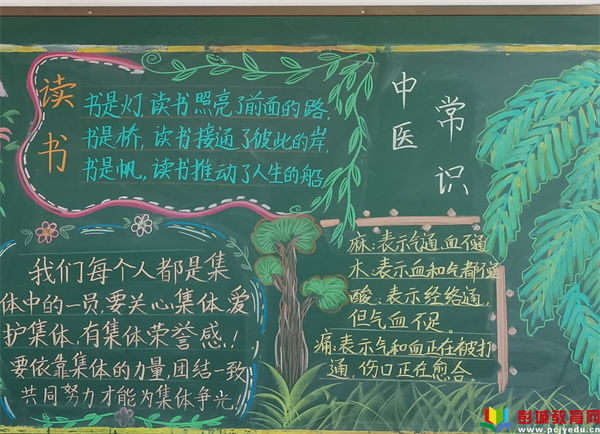 读书
书是灯,读书照亮了前面的路,
书是桥,读书接通了彼此的岸,
书是帆,读书推动了人生的船
中医
常识
我们每个人都是集
体中的一员,要关心集体,爱
护集体,有集体荣誉感!
要依靠集体的力量,团结一致
共同努力才能为集体争光!
麻:表示气通,血不通
木:表示血和气都不通
酸:表示经络通,
但气血不足。
痛:表示气和血正在被打
通,伤口正在愈合。
彭城教育网
www.pcjyedu.cn